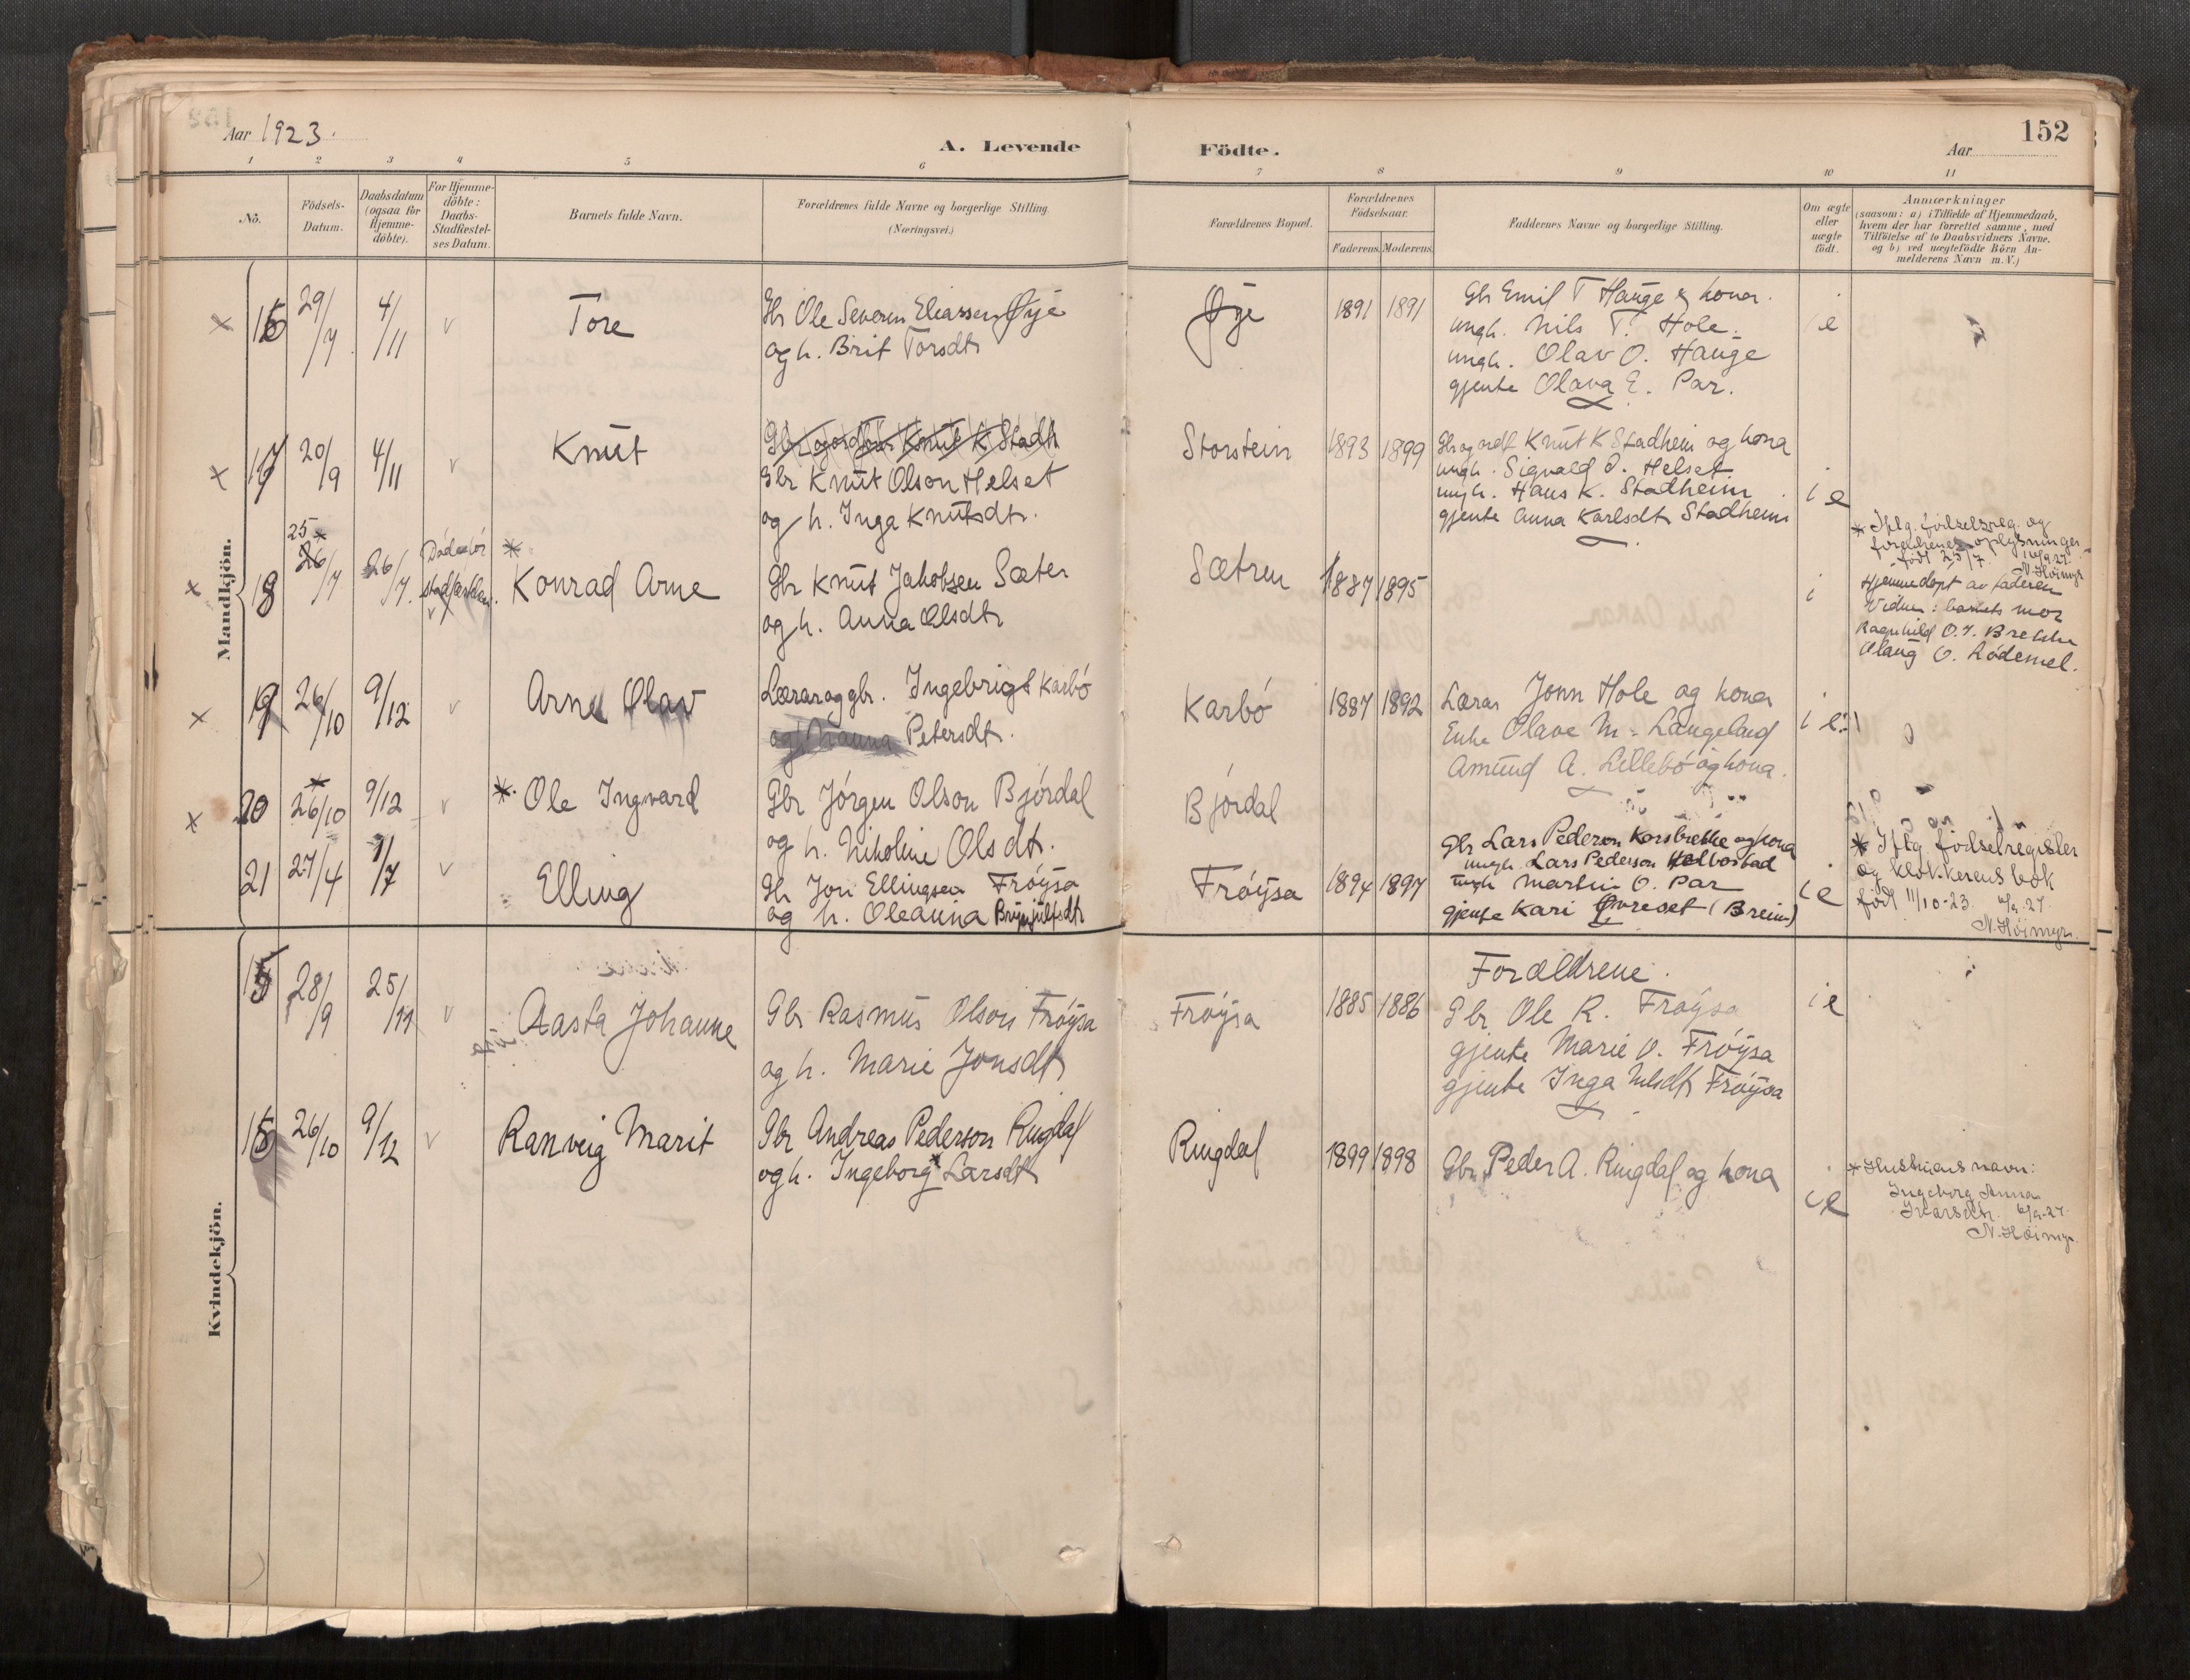 Aar 1923.
A. Levende
Födte.
Aar
152
1 2 3 4 5 6 7 8 9 10 11
No.
Födsels-
Datum.
Daabsdatum
(ogsaa for
Hjemme-
döbte).
For Hjemme-
döbte:
Daabs-
Stadfæstel-
ses Datum.
Barnets fulde Navn.
Forældrenes fulde Navne og borgerlige Stilling.
(Næringsvei.)
Forældrenes Bopæl.
Forældrenes
Födselsaar.
Faderens. Moderens.
Faddernes Navne og borgerlige Stilling.
Om ægte
eller
uægte
födt.
Anmærkninger
(saasom: a) i Tilfælde af Hjemmedaab,
hvem der har forrettet samme, med
Tilföielse af to Daabsvidners Navne,
og b) ved uægtefödte Börn An-
melderens Navn m. V.)
Mandkjön.
× 16 29/7 4/11 v Tore
Gbr Ole Severin Eliassen Øye
og h. Brit Torsdtr
Øye 1891 1891
Gbr Emil T Hauge & kona.
ungk. Nils T. Hole.
ungk. Olav O. Hauge
gjente Olava E. Par.
e
× 17 20/9 4/11 v Knut
Gbr Knut Olson Helset
og h. Inga Knutsdtr.
Storstein 1893 1899
Gbr og ordf Knut K Stadheim og kona
ungk. Sigvald O. Helset
ungk. Hans K. Stadheim
gjente Anna Karlsdtr Stadheim
i e
× 18 25* 26/7 26/7 * Konrad Arne
Gbr Knut Jakobsen Sæter
og h. Anna Olsdtr
Sætren 1887 1895
i
* Iflg. födselsreg. og
foreldrenes oplysninger
född 25/7. 16/9.27.
N. Höimyr
Hjemmedöpt av faderen
Vidner: barnets mor
Ragnhild O. Y. Brekke
Olaug O. Lödemel.
× 19 26/10 9/12 v Arne Olav
Lærar og gbr. Ingebrigt Karbö
og Petersdtr.
Karbö 1887 1892
Lærar Jonn Hole og kona
Enke Olave M. Langeland
Amund A. Lillebö og kona.
i e
× 20 * 26/10 9/12 v * Ole Ingvard
Gbr Jörgen Olson Björdal
og h. Nikoline Olsdtr.
Björdal
* Iflg. födselregister
og klokkerens bok
född 11/10-23. 6/9.27
N. Höimyr.
21 27/4 1/7 v Elling
Gbr Jon Ellingsen Fröysa
og h. Oleanna Brynjulfsdtr
Fröysa 1894 1897
Gbr Lars Pederson Korsbrekke og kona
ungk Lars Pederson
ungk Martin O. Par
gjente Kari (Breim)
i e
Kvindekjön.
15 28/9 25/11 v Aasta Johanne
Gbr Rasmus Olson Fröysa
og h. Marie Jonsdtr
Fröysa 1885 1886
Forældrene.
Gbr Ole R. Fröysa
gjente Marie O. Fröysa
gjente Inga Fröysa
i e
26/10 9/12 v Ranveig Marit
Gbr Andreas Pederson Ringdal
og h. Ingeborg* Larsdtr
Ringdal 1899 1898
Gbr. Peder A. Ringdal og kona
i e
* Hustruens navn:
Ingeborg Anna
Ivarsdtr. 6/9-27.
N. Höimyr.